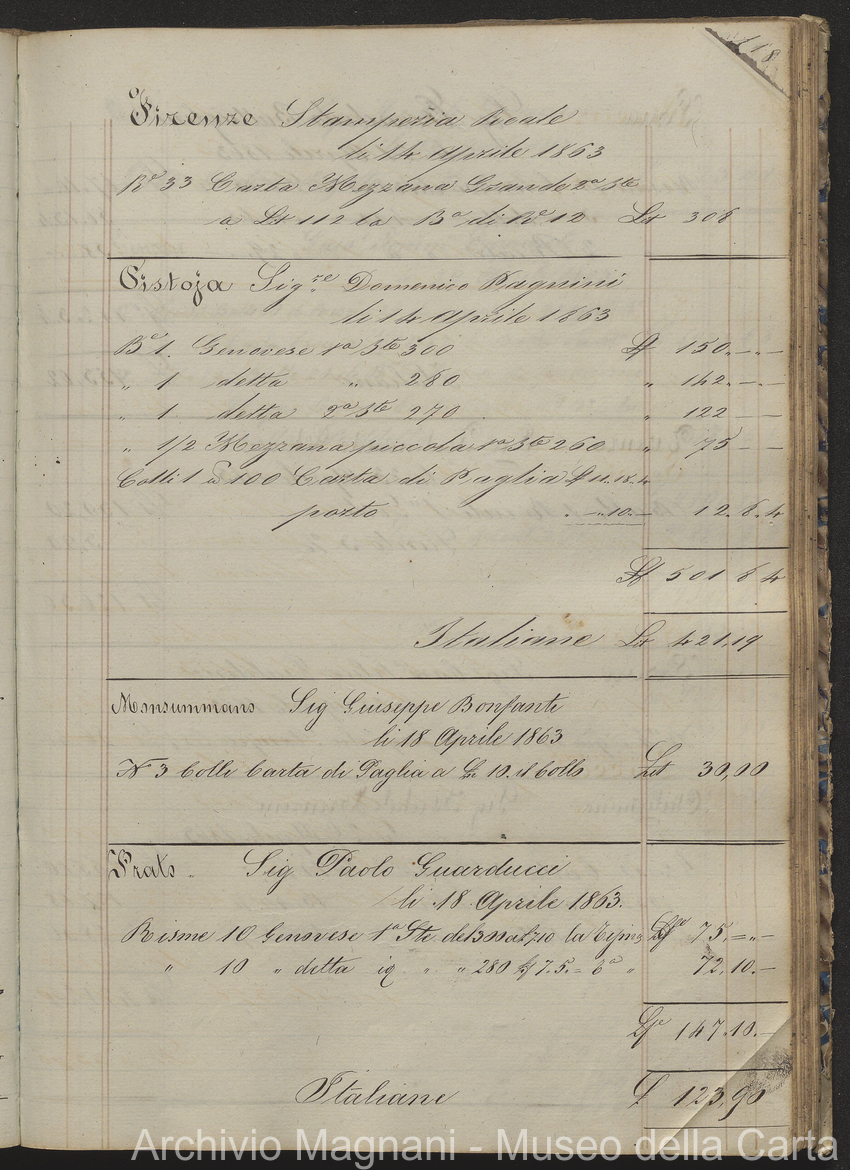 118
Firenze Stamperia Reale
li 14 Aprile 1863
Re 33 Carta Mezzana Grande 2a Ste
a Lt 112 la Ba di Re 12 Lt 308
Pistoja Sigre Domenico Pagnini
li 14 Aprile 1863
Be 1. Genovese 1a Ste 300 Lf 150. — " —
" 1 detta " 280 " 142. — . —
" 1 detta 2a Ste 270 " 122 — —
" 1/2 Mezzana piccola 1a Ste 260 " 75 — —
Colli 1 100 Carta di Paglia 11.18.4
porto " — 10. — 12.8.4
Lf 501 8 4
Italiane Lt 421,19
Monsummano Sig Giuseppe Bonfanti
li 18 Aprile 1863
N 3 Colli Carta di Paglia a Lt 10. il Collo Lit 30,00
Prato. Sig Paolo Guarducci
li 18 Aprile 1863.
Risme 10 Genovese 1a Ste del 300 a 7.10 la Lfe 75. = " —
" 10 " detta " " 280 Lf 7.5. = " 72.10. —
Lfe 147.10. —
Italiane L 123,90
Archivio Magnani - Museo della Carta